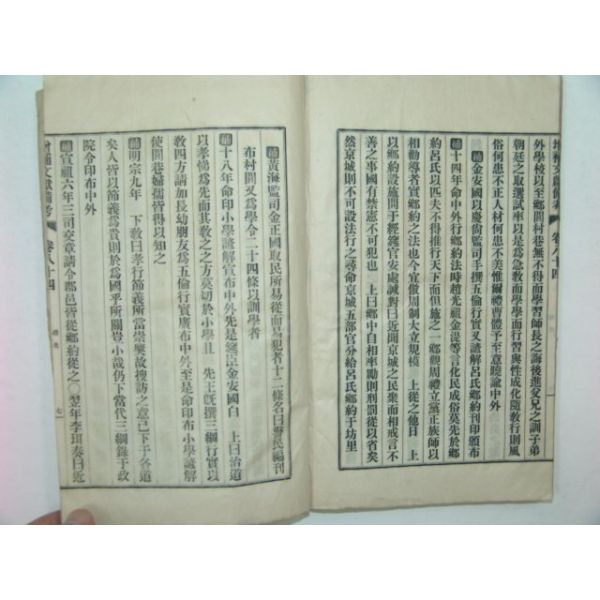 外學校以至鄉閭村巷無不得而學習師長之誨後進父兄之訓子弟
朝廷之取選試率以是為急教而學學而行習與性成化隨教行則風
俗何患不正人材何患不美惟爾禮曹體予至意曉諭中外
補金安國以慶尙監司手撰五倫行實又諺解呂氏鄉約刊印頒布
補十四年命中外行鄉約法時趙光祖金湜等言化民成俗莫先於鄉
約呂氏以匹夫不得推行天下而但施之一鄉觀周禮立黨正族師以
相勸導者實鄉約之法也今宜倣周制大立規模 上從之他日 上
以鄉約設施問于經筵官安處諴對曰近聞京城之民衆而相戒言不
善之事國有禁憲不可犯我 上曰鄉中自相率勵則刑罰從以省矣
然京城則不可設法行之尋命京城五部官分給呂氏鄉約于坊里
補黃海監司金正國取民所易從而易犯者十二條名曰警民編刊
布村閭又爲學令二十四條以訓學者
十八年命印小學諺解宣布中外先是金安國白 上曰治道
以孝悌爲先而其教之之方莫切於小學且 先王旣撰三綱行實以
教四方請加長幼朋友爲五倫行實廣布中外至是命印布小學諺解
使閭巷婦孺皆得以知之
補明宗九年 下敎曰孝行節義所當崇奬故搜訪之意已下于各道
矣人皆以節義爲貴則於爲國乎所關豈小哉仍下當代三綱錄于政
院令印布中外
補宣祖六年三司交章請令郡邑皆從鄉約從之〇翌年李珥奏曰近
增補文獻備考 卷八十四
七
增補文獻備考 卷八十四